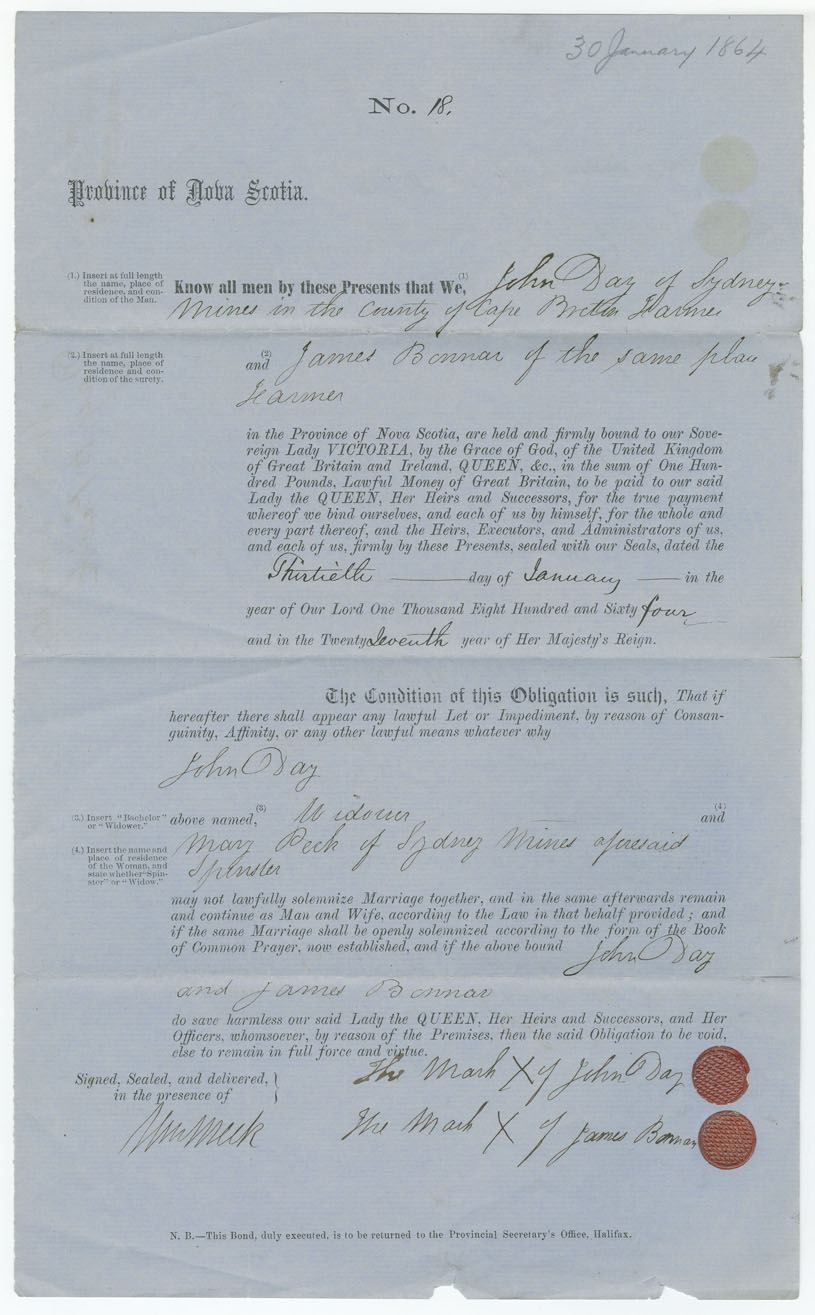 30 January 1864
No. 18.
Province of Nova Scotia.
(1.) Insert at full length
the name, place of
residence, and con-
dition of the Man.
(1)
Know all men by these Presents that We, John Day of Sydney
Mines in the County of Cape Breton Farmer
(2.) Insert at full length
the name, place of
residence and con-
dition of the surety.
(2)
and James Bonnar of the same place
Farmer
in the Province of Nova Scotia, are held and firmly bound to our Sove-
reign Lady VICTORIA, by the Grace of God, of the United Kingdom
of Great Britain and Ireland, QUEEN, &c., in the sum of One Hun-
dred Pounds, Lawful Money of Great Britain, to be paid to our said
Lady the QUEEN, Her Heirs and Successors, for the true payment
whereof we bind ourselves, and each of us by himself, for the whole and
every part thereof, and the Heirs, Executors, and Administrators of us,
and each of us, firmly by these Presents, sealed with our Seals, dated the
Thirtieth day of January in the
year of Our Lord One Thousand Eight Hundred and Sixty four
and in the Twenty Seventh year of Her Majesty's Reign.
The Condition of this Obligation is such, That if
hereafter there shall appear any lawful Let or Impediment, by reason of Consan-
guinity, Affinity, or any other lawful means whatever why
John Day
(3.) Insert "Bachelor"
or "Widower."
above named, (3) Widower (4) and
(4.) Insert the name and
place of residence
of the Woman, and
state whether "Spin-
ster" or "Widow."
Mary Peck of Sydney Mines aforesaid
Spinster
may not lawfully solemnize Marriage together, and in the same afterwards remain
and continue as Man and Wife, according to the Law in that behalf provided; and
if the same Marriage shall be openly solemnized according to the form of the Book
of Common Prayer, now established, and if the above bound John Day
and James Bonnar
do save harmless our said Lady the QUEEN, Her Heirs and Successors, and Her
Officers, whomsoever, by reason of the Premises, then the said Obligation to be void,
else to remain in full force and virtue.
Signed, Sealed, and delivered,
in the presence of
The Mark X of John Day
Wm Meek
The Mark X of James Bonnar
N. B.—This Bond, duly executed, is to be returned to the Provincial Secretary's Office, Halifax.